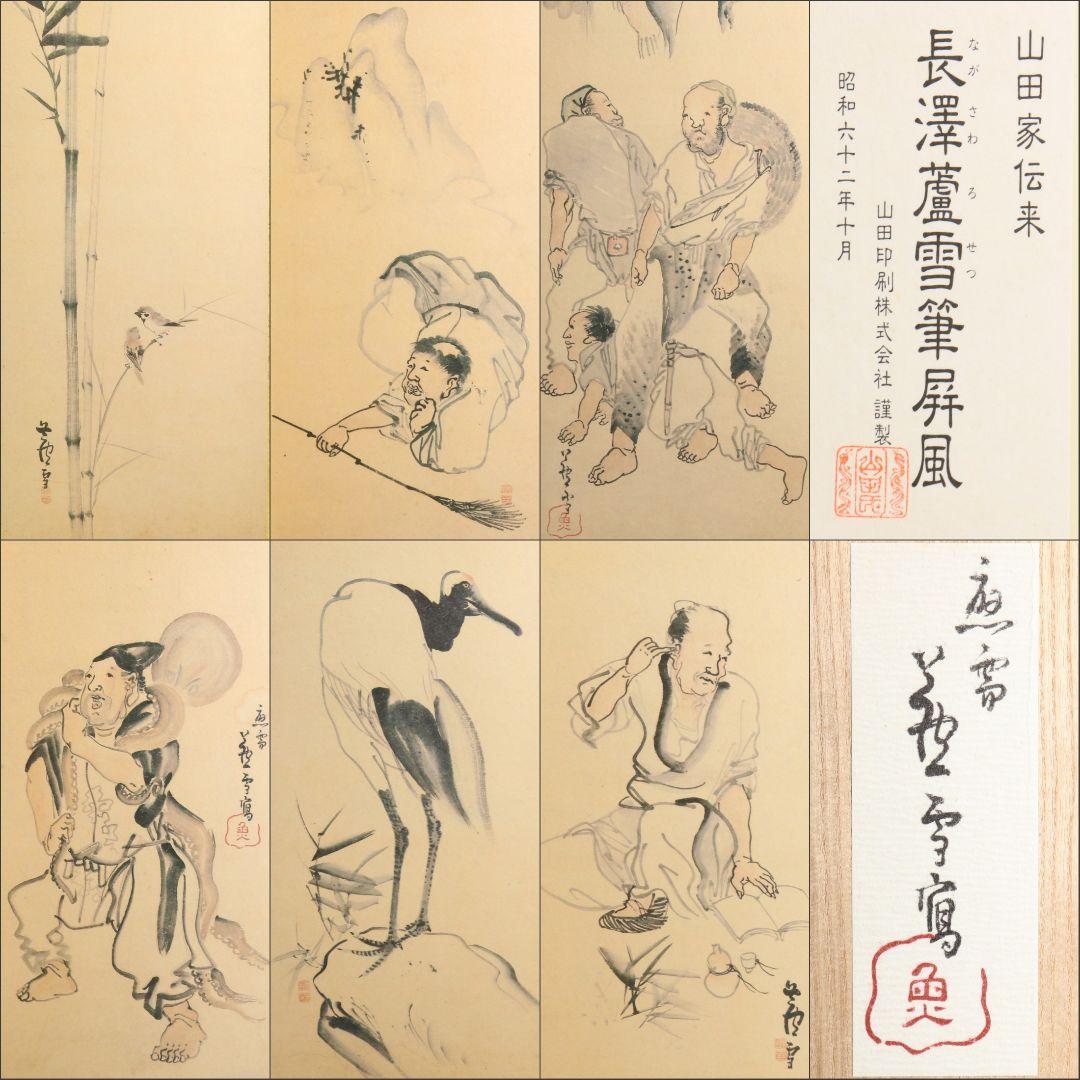 山田家伝来
長澤蘆雪筆屏風
ながさわろせつ
山田印刷株式会社 謹製
昭和六十二年十月
蘆雪
蘆雪
魚
應需
蘆雪寫
魚
蘆雪
應需
蘆雪寫
魚